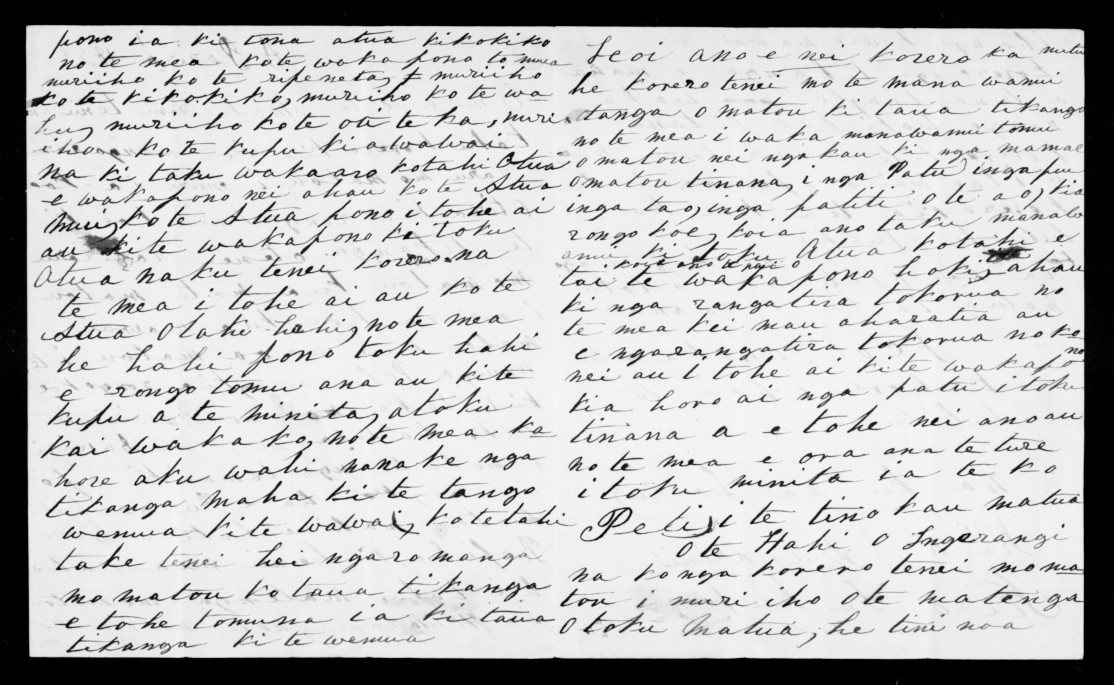 pono ia ki tona atua kikokiko
no te mea kote waka pono to mua
muriiho ko te ripeneta, muriiho
ko te kikokiko, muriiho ko te wa
hu, muriiho kote ou teka, muri
iho ko te kupu kiawawai
na ki taku wakaaro kotahi Atua
e wakapono nei ahau kote Atua
nui, kote Atua pono i tohe ai
au kite wakapono ki toku
Atua naku tenei korero na
te mea i tohe ai au ko te
Atua Otaku hahi, no te mea
he hahi pono toku hahi
e rongo tomu ana au kite
kupu a te minita, atoku
kai wakako, no te mea ka
hore aku wahi nanake nga
tikanga maha ki te tango
wenua kite wawai, kotetahi
take tenei hei ngaromanga
mo matou ko taua tikanga
e tohe tomuna ia ki taua
tikanga ki te wenua
Heoi ano e nei korero ka mutu
he korero tenei mo te mana wanui
tanga o matou ki taua tikanga
no te mea i waka manawanui tomu
o matou nei ngakau ki nga mamae
o matou tinana, i nga Patu, inga puu
inga tao, inga patiti o te ao, kia
rongo koe, koia ano taku manawa
anui ki toku Atua kotahi e
koia ano te ngio
tai te wakapono hoki, ahau
ki nga rangatira tokorua no
te mea kei mau aharatia au
e ngarangatira tokorua no ko
nei au i tohe ai kite wakapo
no
kia horo ai nga patu i toku
tinana a e tohe nei anoau
no te mea e ora ana te ture
i toku minita ia te ko
Peti, i te tino kau matua
Ote Hahi O Ingerangi
na konga korero tenei mo ma
tou i muri iho Ote matenga
O toku Matua, he tini noa